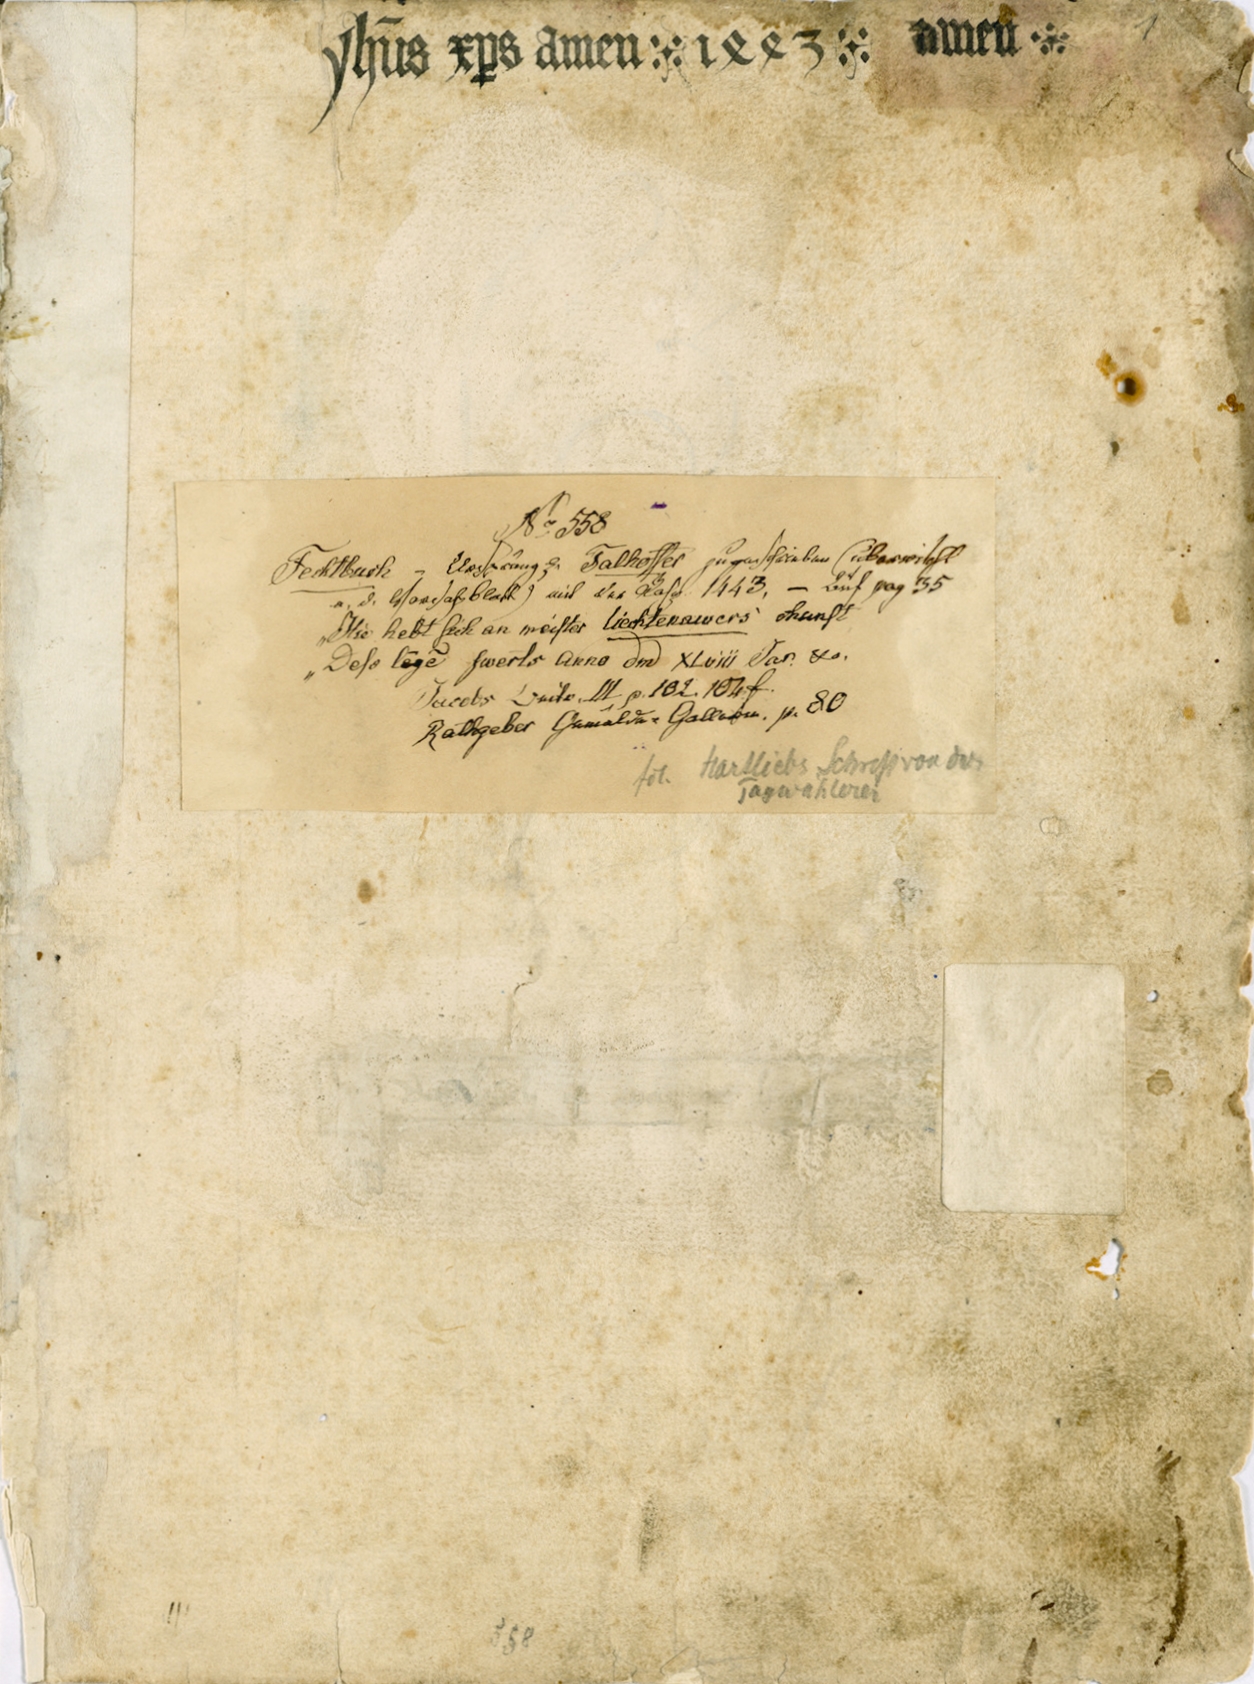 yhūs xp̄s amen 1443 amen
1
No. 558
Fechtbuch – Talhoffer zugeschrieben
mit der 1443. – Auf pag 35
„Hie hebt sich an meister liechtenawers chunst
„Deſs lēgē swerts Anno dm̄ XLviii Jar. &c.
Jacobs III p. 102. 104 f.
Rathgeber Gemälde-Gallerie. p. 80
Hartliebs Schrift von der
Tagwählerei
558